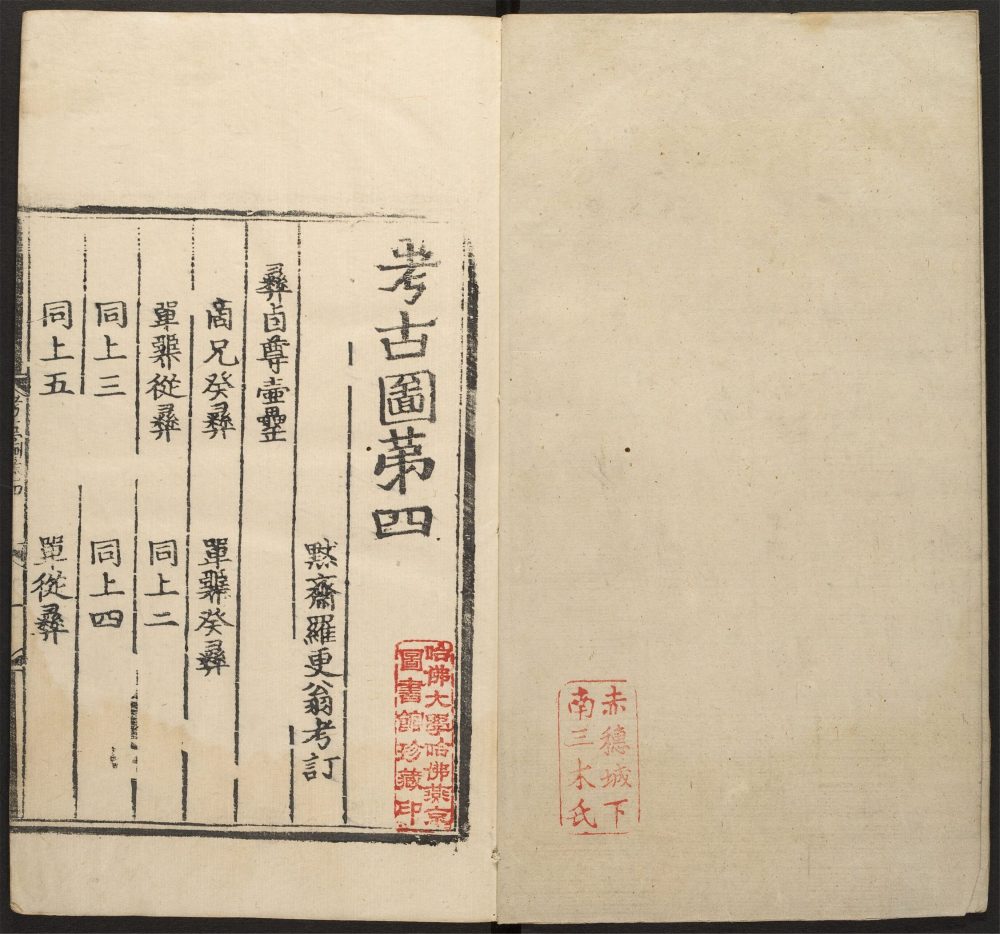 赤穗城下
南三木氏
考古圖苐四
哈佛大學哈佛燕京
圖書館珍藏印
黙齋羅更翁考訂
彝卣尊壷罍
商兄癸彝
單𤔲癸彝
單𤔲從彝
同上二
同上三
同上四
同上五
單從彝